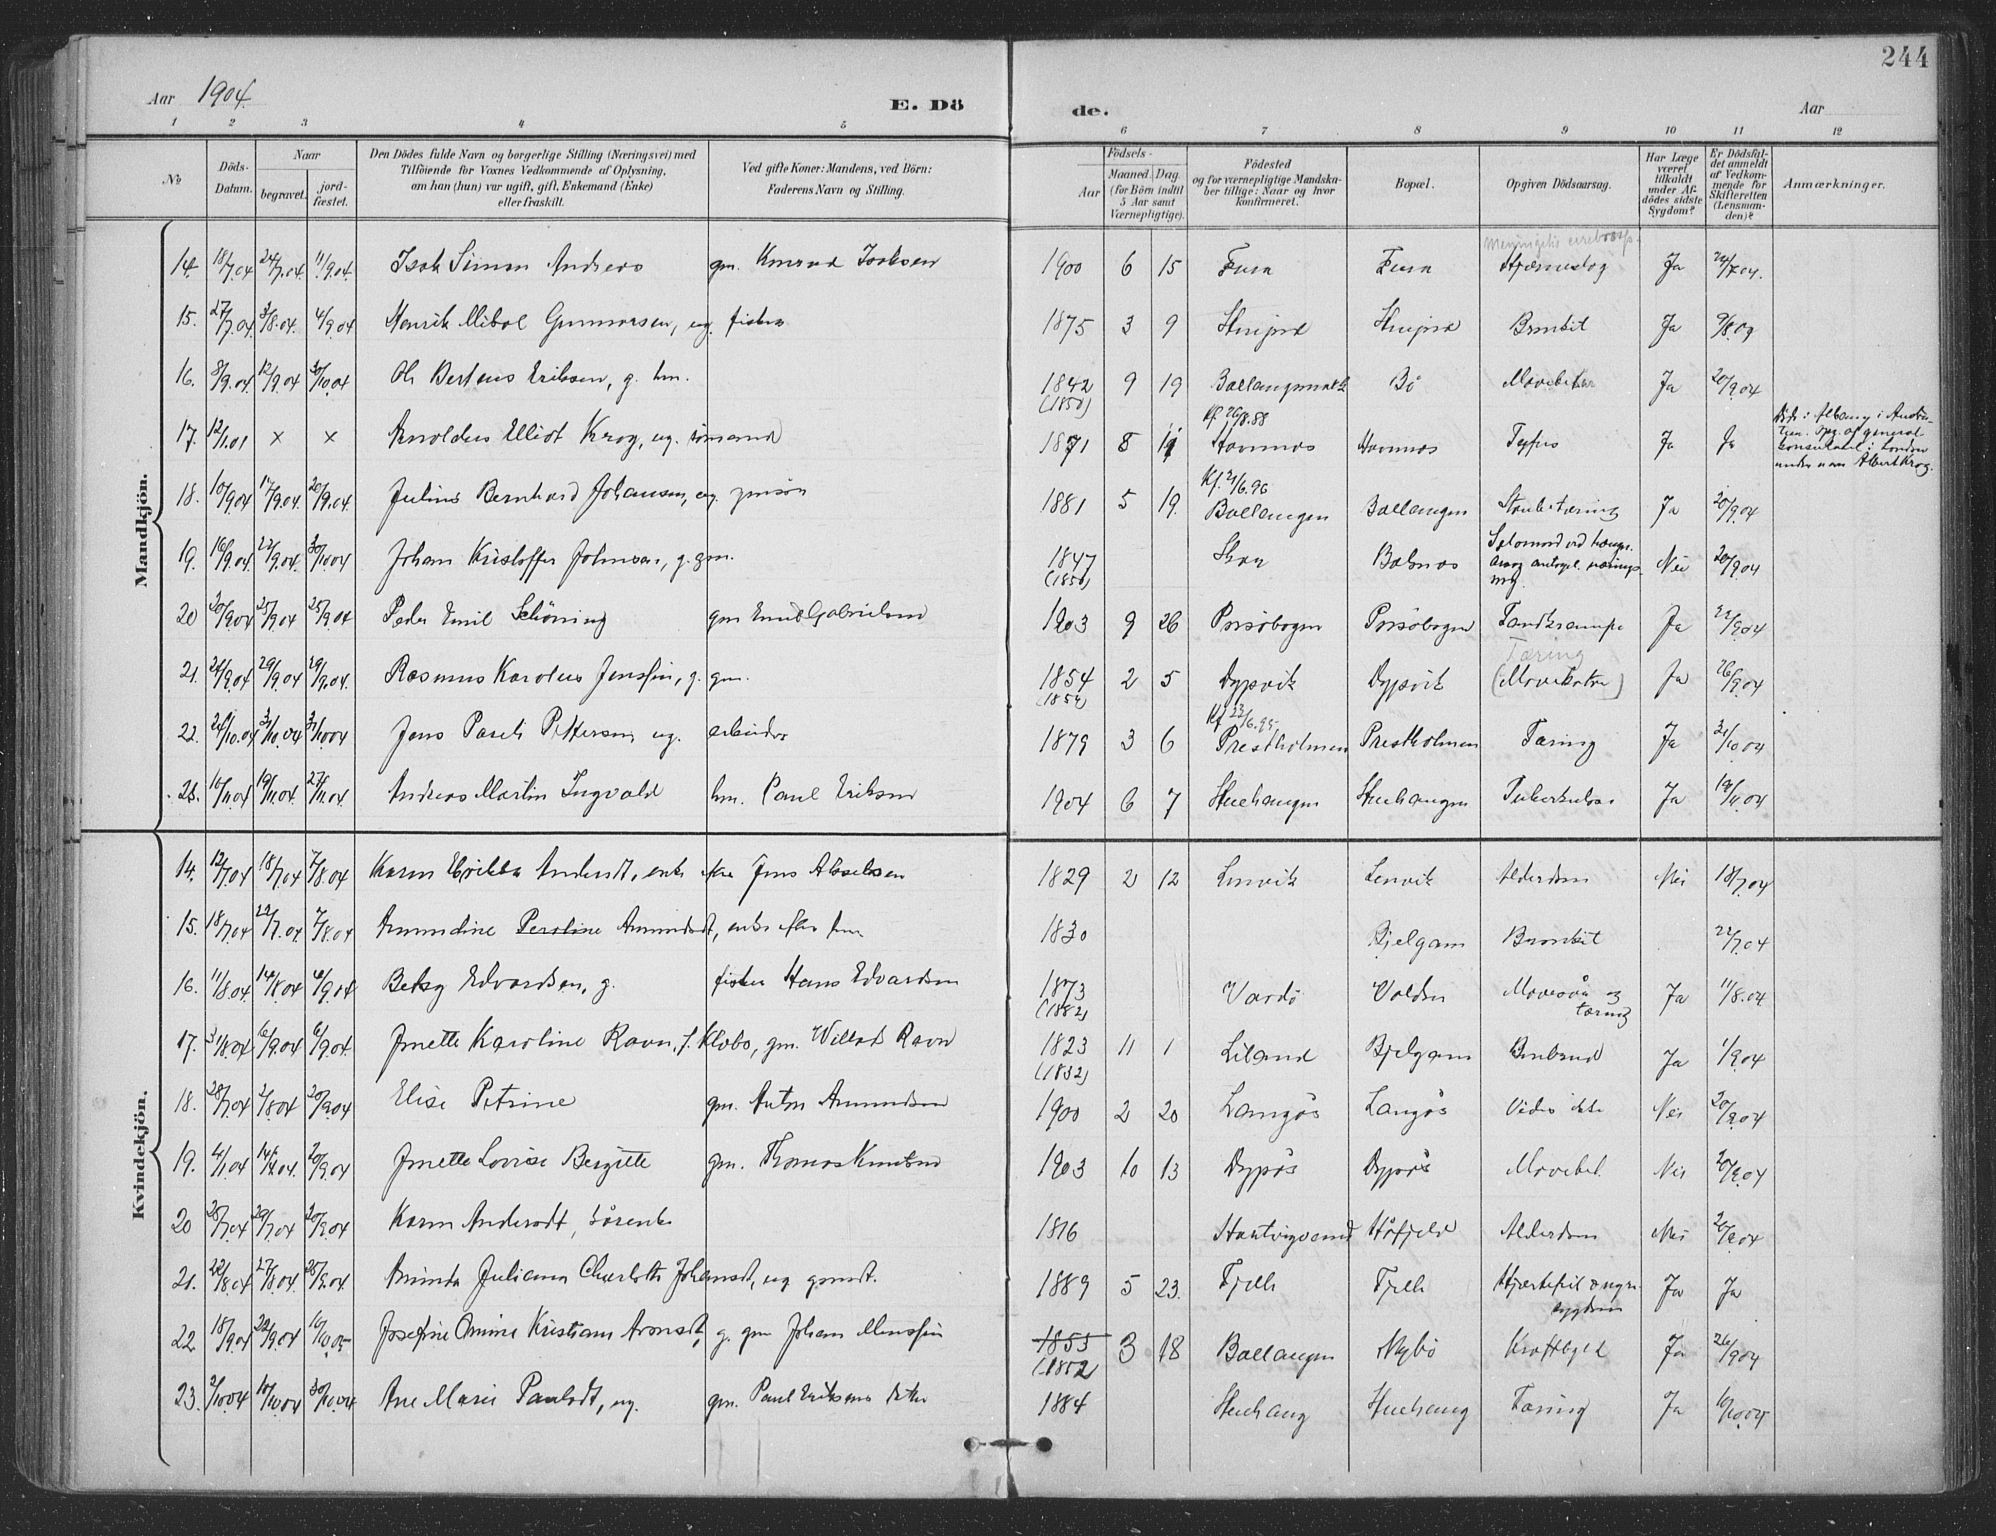 244
Aar 1904. E. Dö de. Aar
1 2 3 4 5 6 7 8 9 10 11 12
No Döds-Datum. Naar begravet. jord-fæstet. Den Dödes fulde Navn og borgerlige Stilling (Næringsvei) med Tilföiende for Voxnes Vedkommende af Oplysning, om han (hun) var ugift, gift, Enkemand (Enke) eller fraskilt. Ved gifte Koner: Mandens, ved Börn: Faderens Navn og Stilling. Födsels- Aar Maaned. Dag. (for Börn indtil 5 Aar samt Værnepligtige). Födested og for værnepligtige Mandska-ber tillige: Naar og hvor konfirmeret. Bopæl. Opgiven Dödsaarsag. Har Læge været tilkaldt under Af-dödes sidste Sygdom? Er Dödsfal-det anmeldt af Vedkom-mende for Skifteretten (Lensman-den)? Anmærkninger.
Mandkjön.
14. 18/7.04 24/7.04 11/9.04. Isak Simon Andreas gm. Konrad Isaksen 1900 6 15 Fura Fura Ja 24/7 04.
15. 27/7.04 3/8.04. 4/9.04 Henrik Mibol Gunnarsen, ug. fisker 1875 3 9 Bronkit Ja
16. 8/9.04 12/9.04 30/10.04 Ole Berteus Eriksen, g. hm. 1842 (1850) 9 19 Ballangsmark Bö Ja 20/9.04
17. 12/1.01 × × Arnoldus Elliot Krog, ug. sömand 1871 8 11 Kf. 26/8.88 Havnnes Havnnes Tyfus Ja Ja Albany i general konsulatet i London under navn Albert Krog.
18. 10/9.04 17/9.04. 20/9.04. Julius Bernhard Johansen, ug. gmsön 1881 5 19. Kf. 21/6.96 Ballangen Ballangen Strubetæring Ja 20/9.04
19. 16/9.04. 22/9.04. 30/10 04 Johan Kristoffer Johnsen, g. gm. 1847 (1850) Selvmord ved Nei 20/9.04
20 20/9.04 25/9.04 25/9.04 Peder Emil Schöning gm Emil Gabrielsen 1903 9 26 Porsöbogen Porsöbogen Tandkrampe Ja 22/9.04
21. 24/9.04 29/9.04 29/9.04. Rasmus Karolius Jenssen, g. gm. 1854 (1854) 2 5 Dypvik Dypvik Tæring (Mavekatar) Ja 26/9.04
22. 26/10.04 31/10.04 31/10 04 Jens Pettersen ug. arbeider 1879 3 6 Kf 23/6.95 Prestholmen Prestholmen Tæring Ja 31/10 04
23. 10/11.04 19/11.04. 27/11.04. Andreas Martin Ingvald hm. Paul Eriksen 1904 6 7 Stuehaugen Stuehaugen Tuberkulose Ja 19/11.04
Kvindekjön.
14. 12/7.04 18/7.04 7/8.04 Karen Andersdt, enke efter Jens Akselssen 1829 2 12 Lenvik Lenvik Alderdom Nei 18/7.04
15. 18/7.04 22/7.04. 7/8.04 Amundine Peroline Amundsdt, enke efter hm. 1830 Bjelgam Bronkit 22/7.04
16. 11/8.04. 14/8.04 6/9.04 Betzy Edvardsen, g. fisker Hans Edvardsen 1873 (1882) Vardö Volden Mavesår og tæring Ja 11/8.04
17. 31/8.04 6/9.04 6/9.04. Jonette Karoline Ravn, f. Klæbo, gm. Willads Ravn 1823 (1832) 11 1 Liland Bjelgam Benbrud Ja 1/9.04
18. 28/7.04 2/8.04 20/9.04 Elise Petrine gm. Anton Amundsen 1900 2 20 Langös Langös Vides ikke Nei 20/9.04
19. 4/1.04 20/9.04 Jonette Lovise Bergitte gm. Thomas Knutsen 1903 10 13 Dypös Dypös Nei 20/9.04
20 28/7.04 29/7.04 20/9.04 Karen Andersdt, 1816 Höfjeld Alderdom Nei 20/9.04
21. 22/8.04 27/8.04. 25/9.04 Aminda Juliane Charlotte Johansdt, ug gmdt. 1889 5 23. Fjelli Fjelli Hjertefeil Ja Ja
22. 18/9.04 22/9.04 16/10.05 Josefine Omine Kristiane Aronsdt, g. gm Johan Monssen 1853 (1852) 3 18 Ballangen Nybö Kræftbyld Ja 26/9.04
23. 2/10.04 10/10.04 30/10.04 Ane Marie Paulsdt, ug. gm. Paul Eriksens datter 1884 Stuehaug Stuehaug Tæring Ja